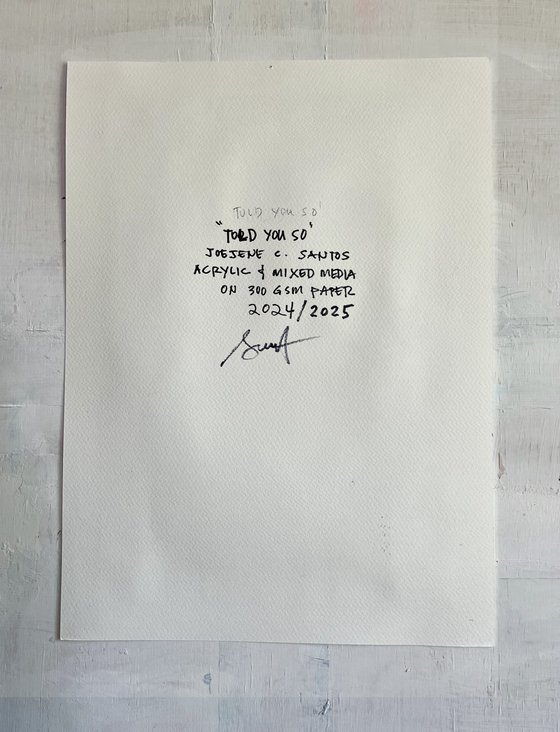 TOLD YOU SO'
"TOLD YOU SO"
JOEJENE C. SANTOS
ACRYLIC & MIXED MEDIA
ON 300 GSM PAPER
2024/2025